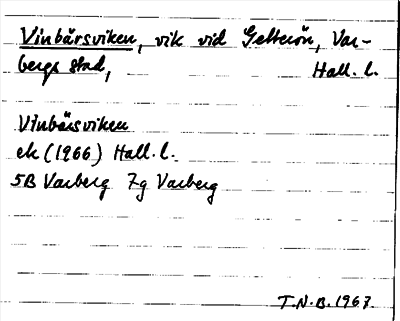 Vinbärsviken, vik vid Getterön, Var-
bergs stad, Hall. l.
Vinbärsviken
ek (1966) Hall. l.
5B Varberg 7g Varberg
T.N.B. 1967.